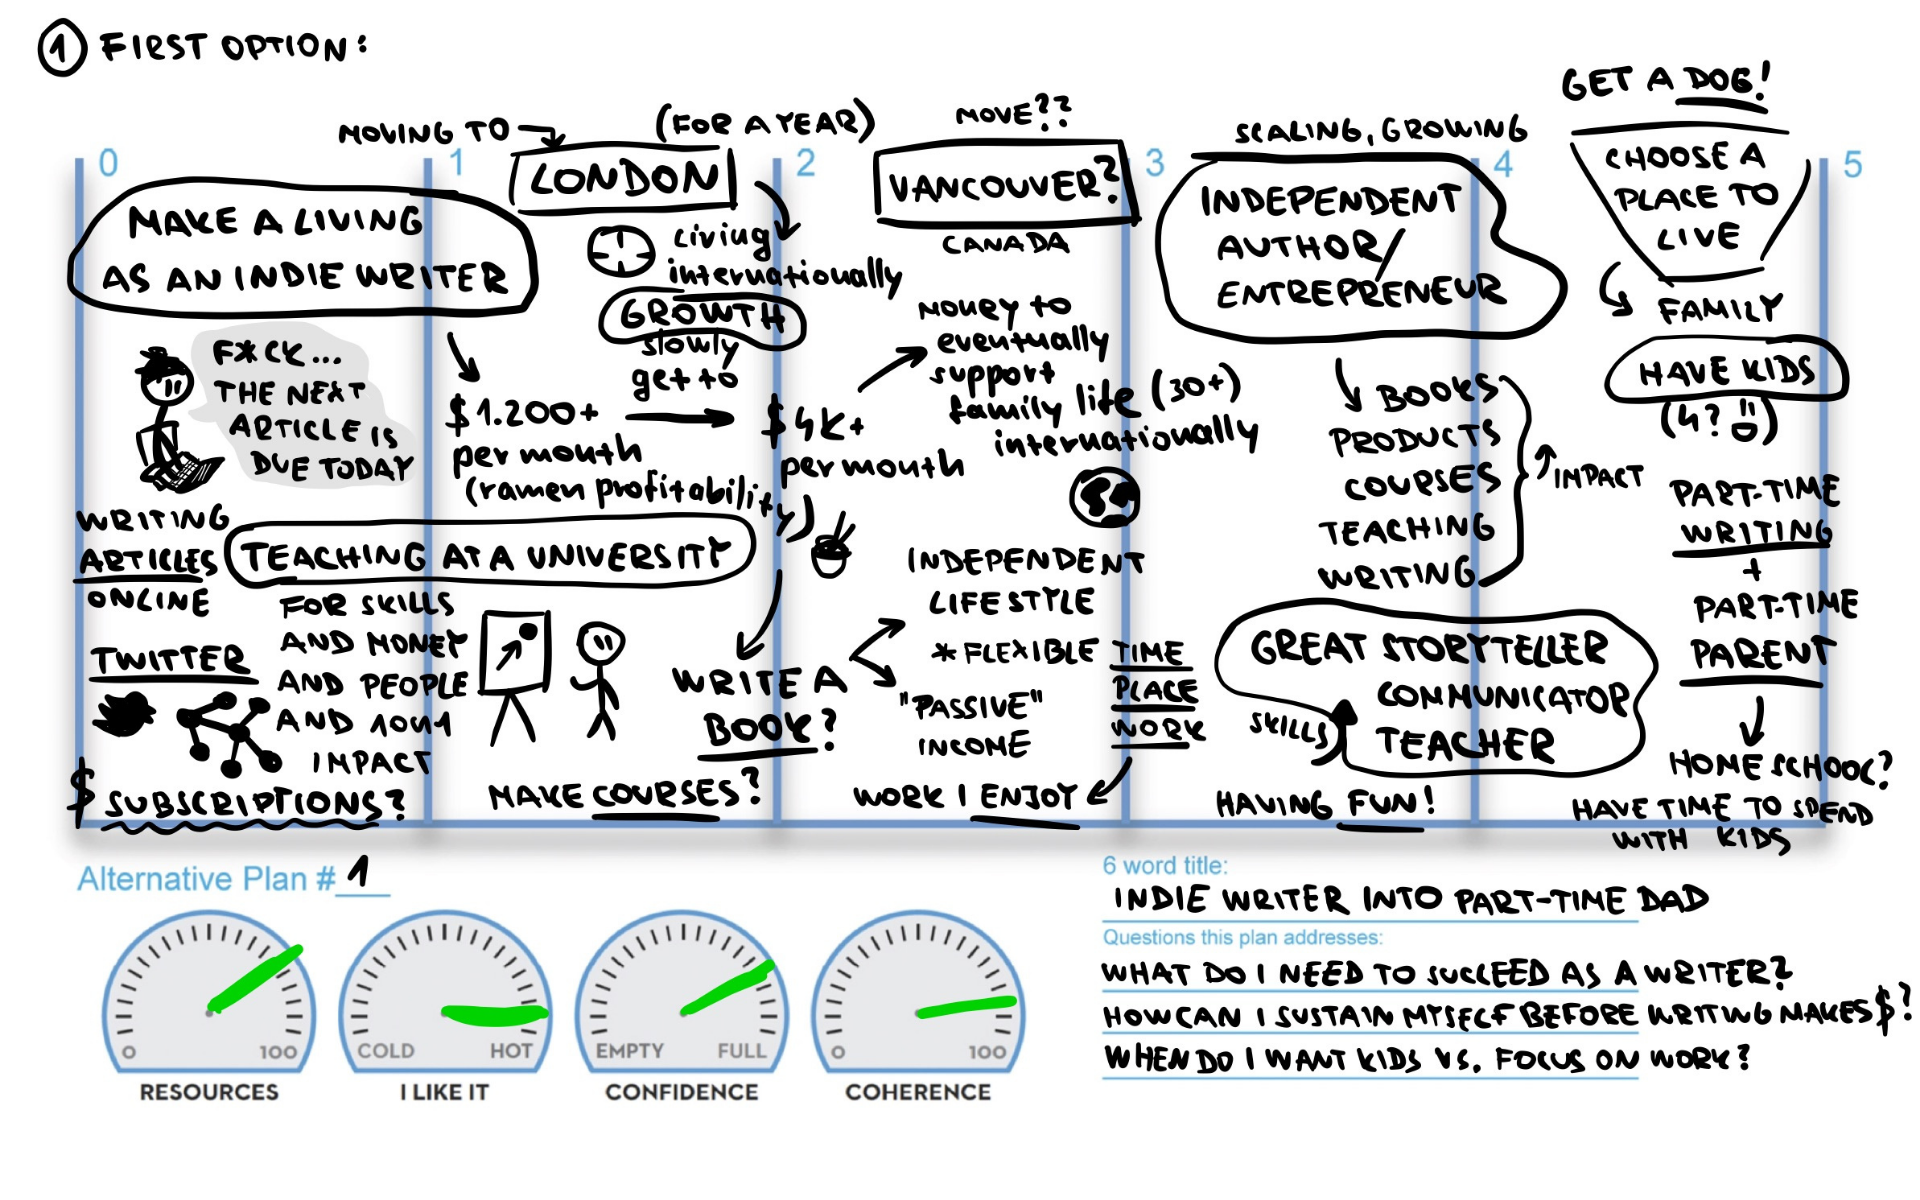 1 FIRST OPTION:
MOVING TO
(FOR A YEAR)
MOVE??
SCALING, GROWING
GET A DOG!
0
1
2
3
4
5
MAKE A LIVING
AS AN INDIE WRITER
F*CK...
THE NEXT
ARTICLE IS
DUE TODAY
WRITING
ARTICLES
ONLINE
TWITTER
$ SUBSCRIPTIONS?
TEACHING AT A UNIVERSITY
FOR SKILLS
AND MONEY
AND PEOPLE
AND 1 ON 1
IMPACT
LONDON
living
internationally
GROWTH
slowly
get to
$1.200+
per month
(ramen profitability)
$4K+
per month
WRITE A
BOOK?
MAKE COURSES?
VANCOUVER?
CANADA
money to
eventually
support
family life (30+)
internationally
INDEPENDENT
LIFESTYLE
*FLEXIBLE TIME
PLACE
WORK
"PASSIVE"
INCOME
WORK I ENJOY
INDEPENDENT
AUTHOR/
ENTREPRENEUR
BOOKS
PRODUCTS
COURSES
TEACHING
WRITING
IMPACT
GREAT STORYTELLER
COMMUNICATOR
TEACHER
SKILLS
HAVING FUN!
CHOOSE A
PLACE TO
LIVE
FAMILY
HAVE KIDS
(4? :D)
PART-TIME
WRITING
+
PART-TIME
PARENT
HOMESCHOOL?
HAVE TIME TO SPEND
WITH KIDS
Alternative Plan # 1
0 100
RESOURCES
COLD HOT
I LIKE IT
EMPTY FULL
CONFIDENCE
0 100
COHERENCE
6 word title:
INDIE WRITER INTO PART-TIME DAD
Questions this plan addresses:
WHAT DO I NEED TO SUCCEED AS A WRITER?
HOW CAN I SUSTAIN MYSELF BEFORE WRITING MAKES $?
WHEN DO I WANT KIDS VS. FOCUS ON WORK?